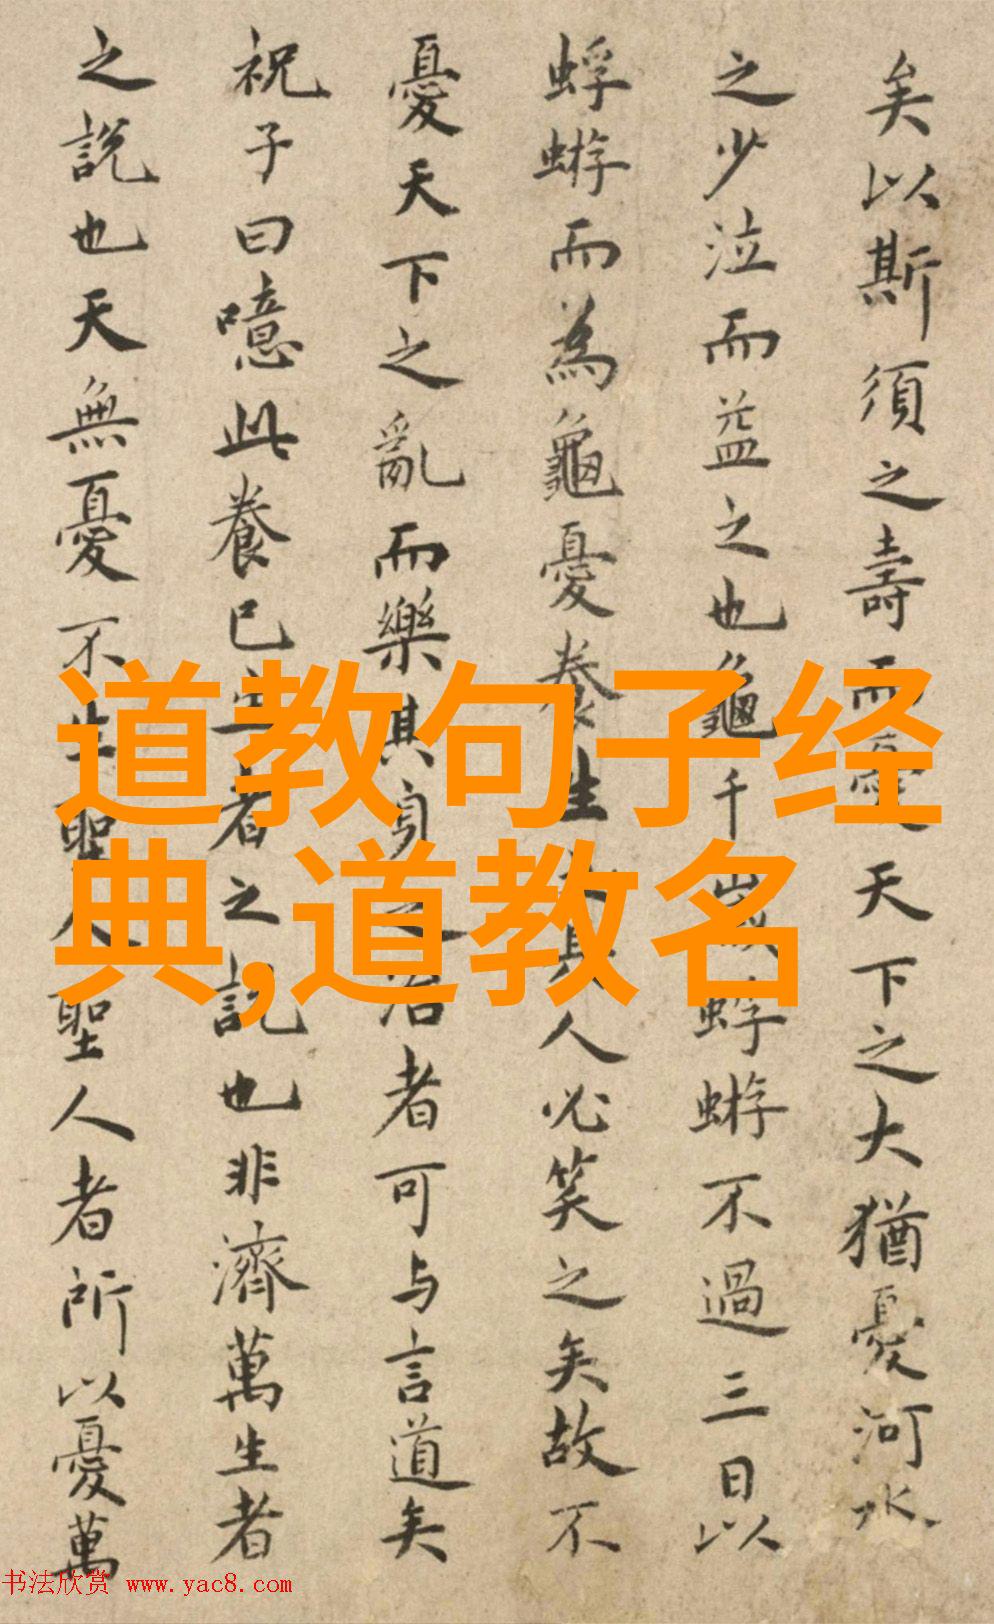 矣以斯須之壽而憂天下之大猶憂河水
之少泣而益之也龜千歲蜉蝣不過三日以
蜉蝣而為龜憂養生之具人必笑之矣故不
憂天下之亂而樂其身之治者可与言道矣
祝子曰噫此養己生者之説也非濟萬生者
之説也天無憂不生聖人聖人者所以憂萬
道教句子经
典,道教名
书法欣赏 www.yac8.com